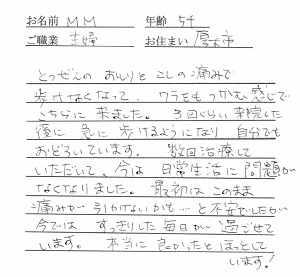 お名前 MM 年齢 54
ご職業 主婦 お住まい 厚木市
とつぜんの おしりと こしの痛みで
歩けなくなって、ワラをもつかむ感じで
こちらに来ました。3回くらい来院した
後に 急に 歩けるようになり 自分でも
おどろいています。 数回治療して
いただいて、今は 日常生活に問題が
なくなりました。 最初は このまま
痛みが引かないかも…と不安でしたが
今では すっきりした毎日が 過ごせて
います。 本当に 良かったと ほっとして
います!